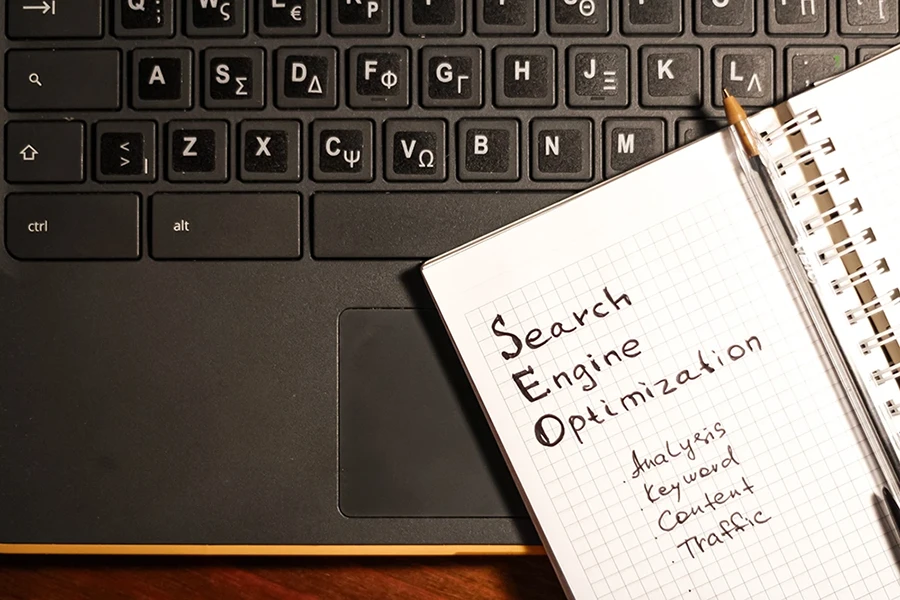 Q ;
W ς
E € 
R Ρ
Θ
A
S Σ
D Δ
F Φ
G Γ
H
J Ξ
K
L Λ
< >
Z
X
C Ψ
V Ω
B
N
M
ctrl
alt
Search
Engine
Optimization
Analysis
Keyword
Content
Traffic